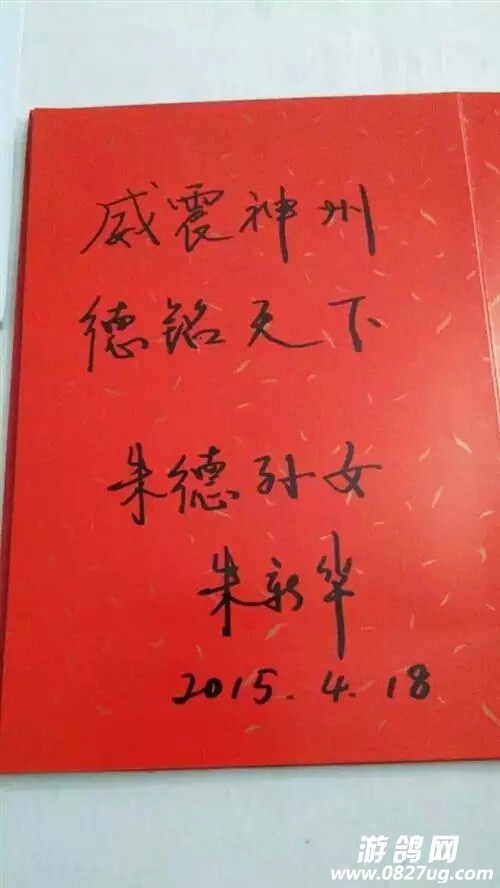 威震神州
德铭天下
朱德孙女
朱新华
2015.4.18
游鸽网
www.0827ug.com